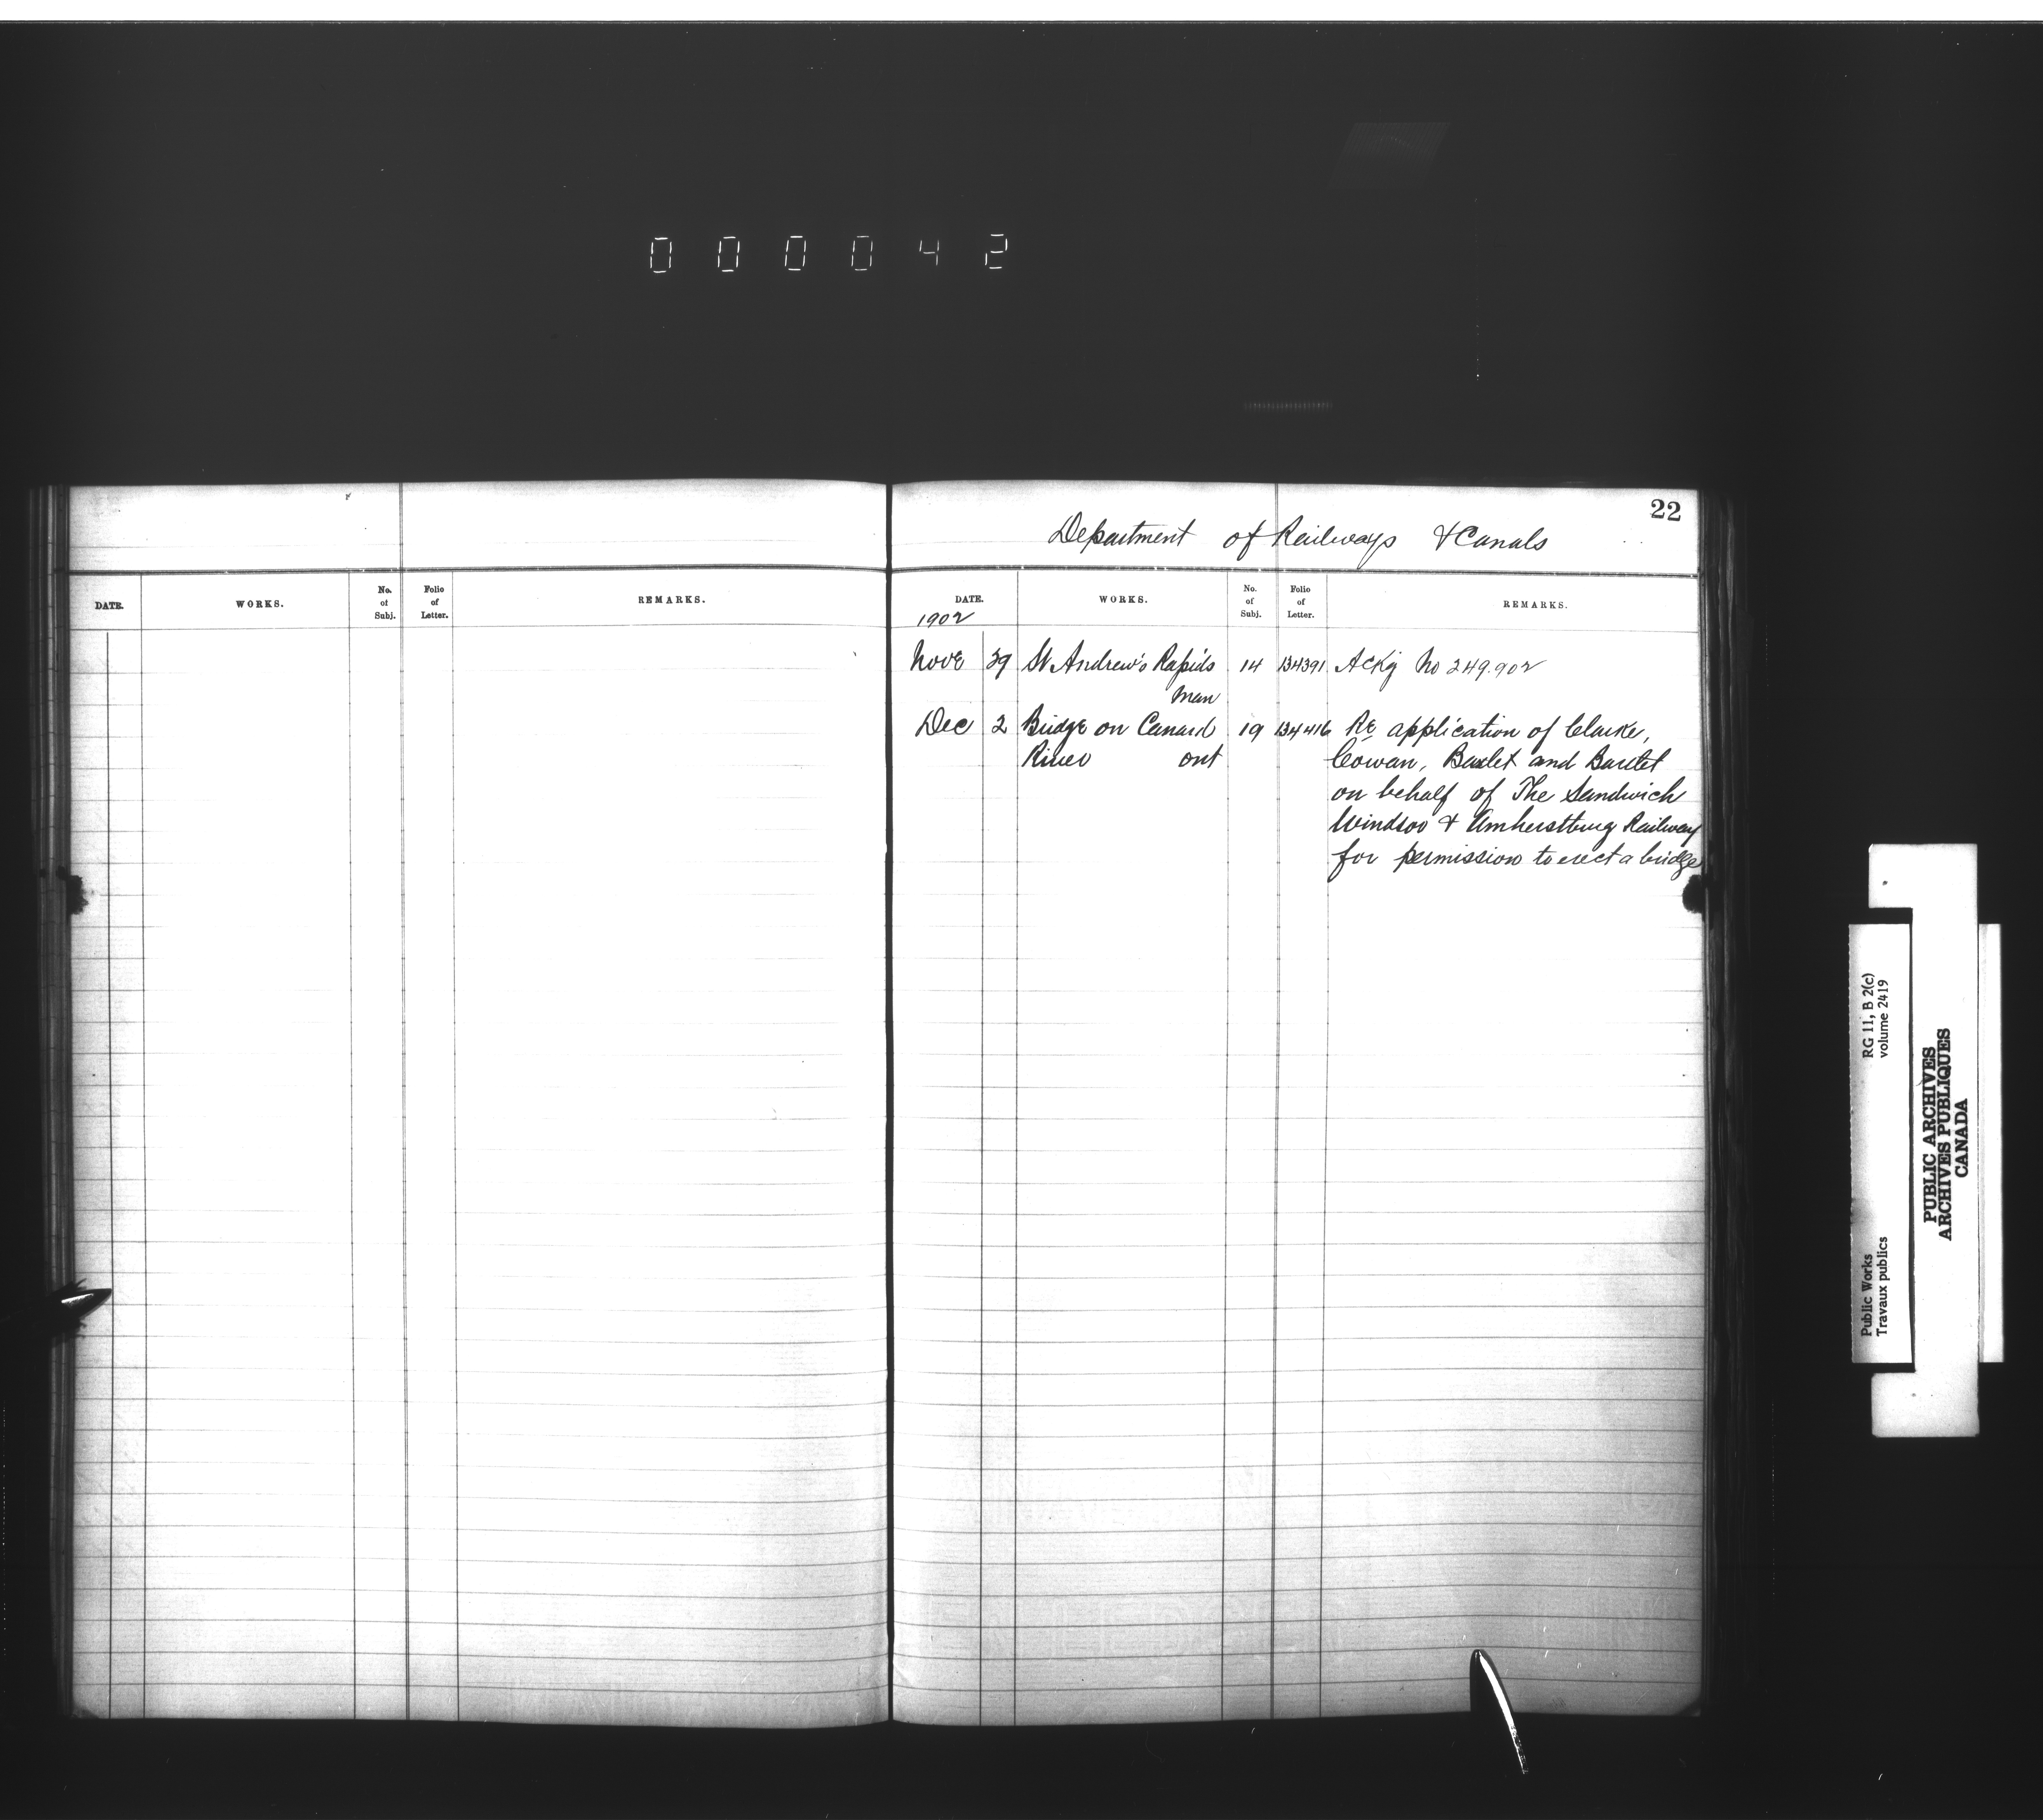 0 0 0 0 4 2
22
Department of Railways & Canals
DATE. WORKS. No. of Subj. Folio of Letter. REMARKS.
DATE. WORKS. No. of Subj. Folio of Letter. REMARKS.
1902
Nove 29 St Andrew's Rapids 14 134391 Ackg No 249.902
Man
Dec 2 Bridge on Canard 19 134416 Re application of Clarke,
River ont Cowan, Bartlet and Bartlet
on behalf of The Sandwich
Windsor & Amherstburg Railway
for permission to erect a bridge
Public Works RG 11, B 2(c)
Travaux publics volume 2419
PUBLIC ARCHIVES
ARCHIVES PUBLIQUES
CANADA